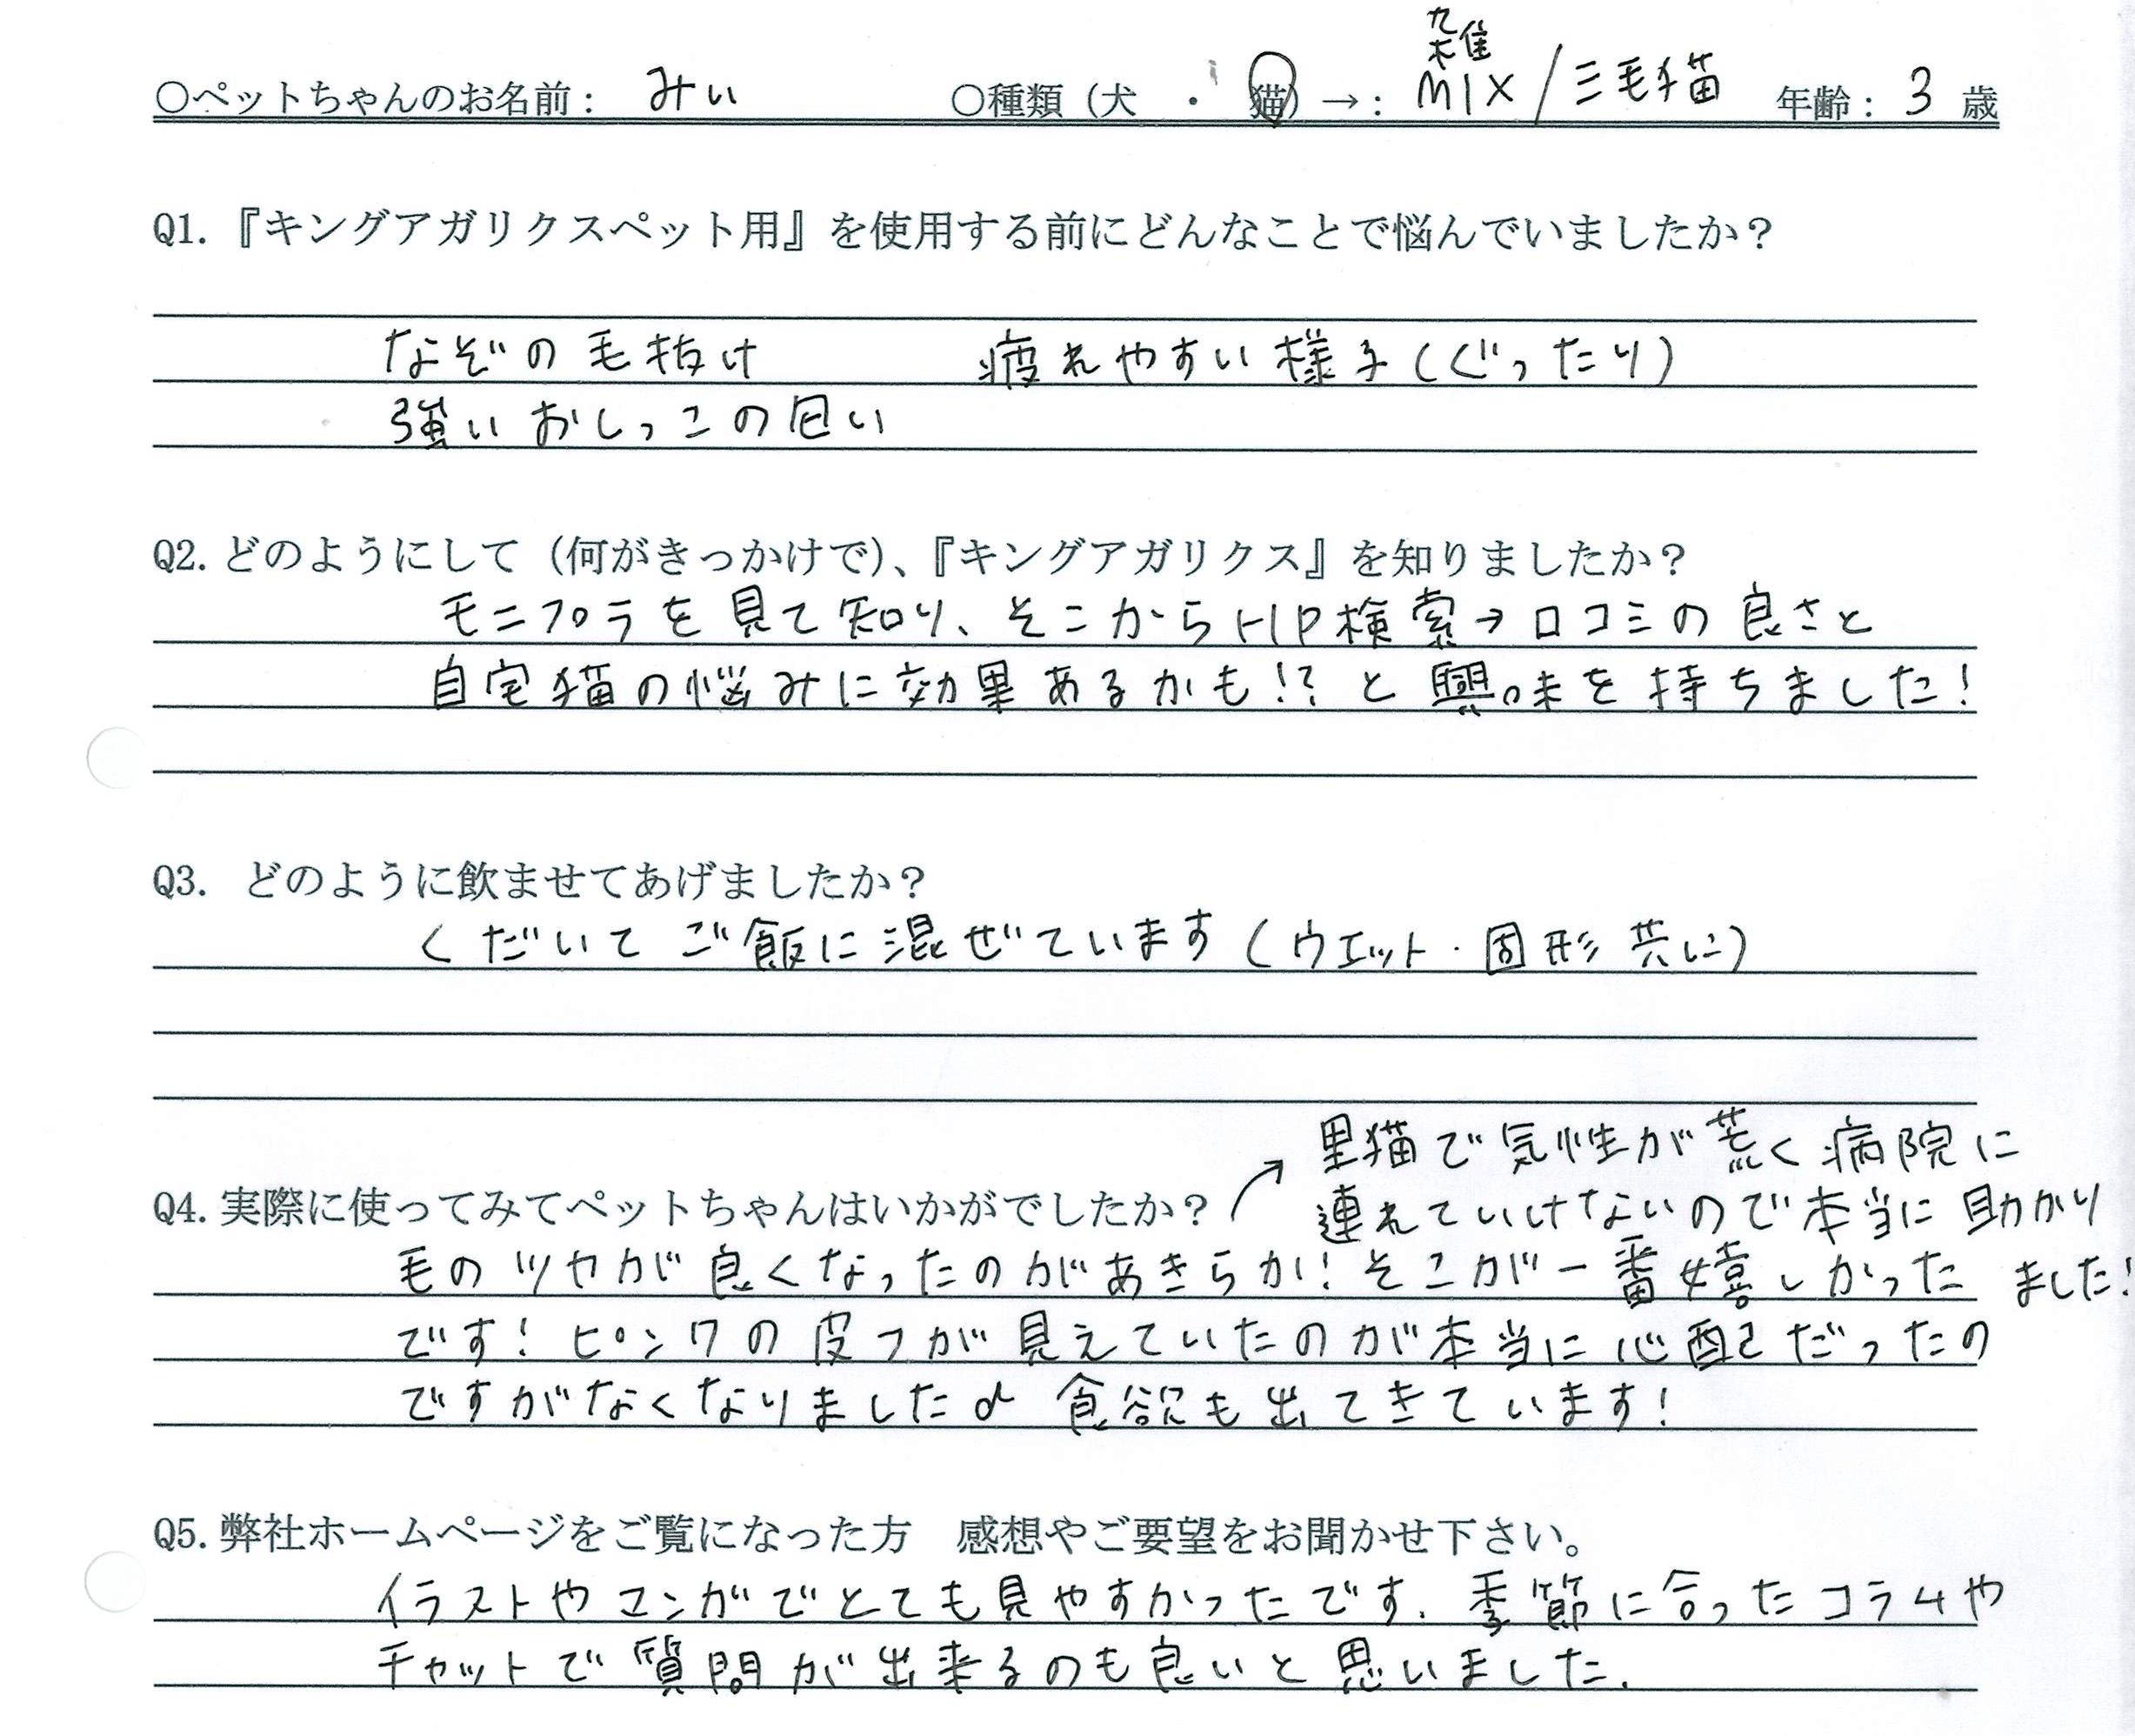 ○ペットちゃんのお名前： みぃ ○種類（犬 ・ 猫）→： 雑 MIX/三毛猫 年齢： 3 歳
Q1.『キングアガリクスペット用』を使用する前にどんなことで悩んでいましたか？
なぞの毛抜け 疲れやすい様子(ぐったり)
強いおしっこの匂い
Q2.どのようにして（何がきっかけで）、『キングアガリクス』を知りましたか？
モニプラを見て知り、そこからHP検索→口コミの良さと
自宅猫の悩みに効果あるかも!?と興味を持ちました!
Q3. どのように飲ませてあげましたか？
くだいてご飯に混ぜています(ウエット・固形共に)
Q4.実際に使ってみてペットちゃんはいかがでしたか？
毛のツヤが良くなったのがあきらか!そこが一番嬉しかった
です!ピンクの皮フが見えていたのが本当に心配だったの
ですがなくなりました 食欲も出てきています!
→ 里猫で気性が荒く病院に
連れていけないので本当に助かり
ました!
Q5.弊社ホームページをご覧になった方 感想やご要望をお聞かせ下さい。
イラストやマンガでとても見やすかったです. 季節に合ったコラムや
チャットで質問が出来るのも良いと思いました.